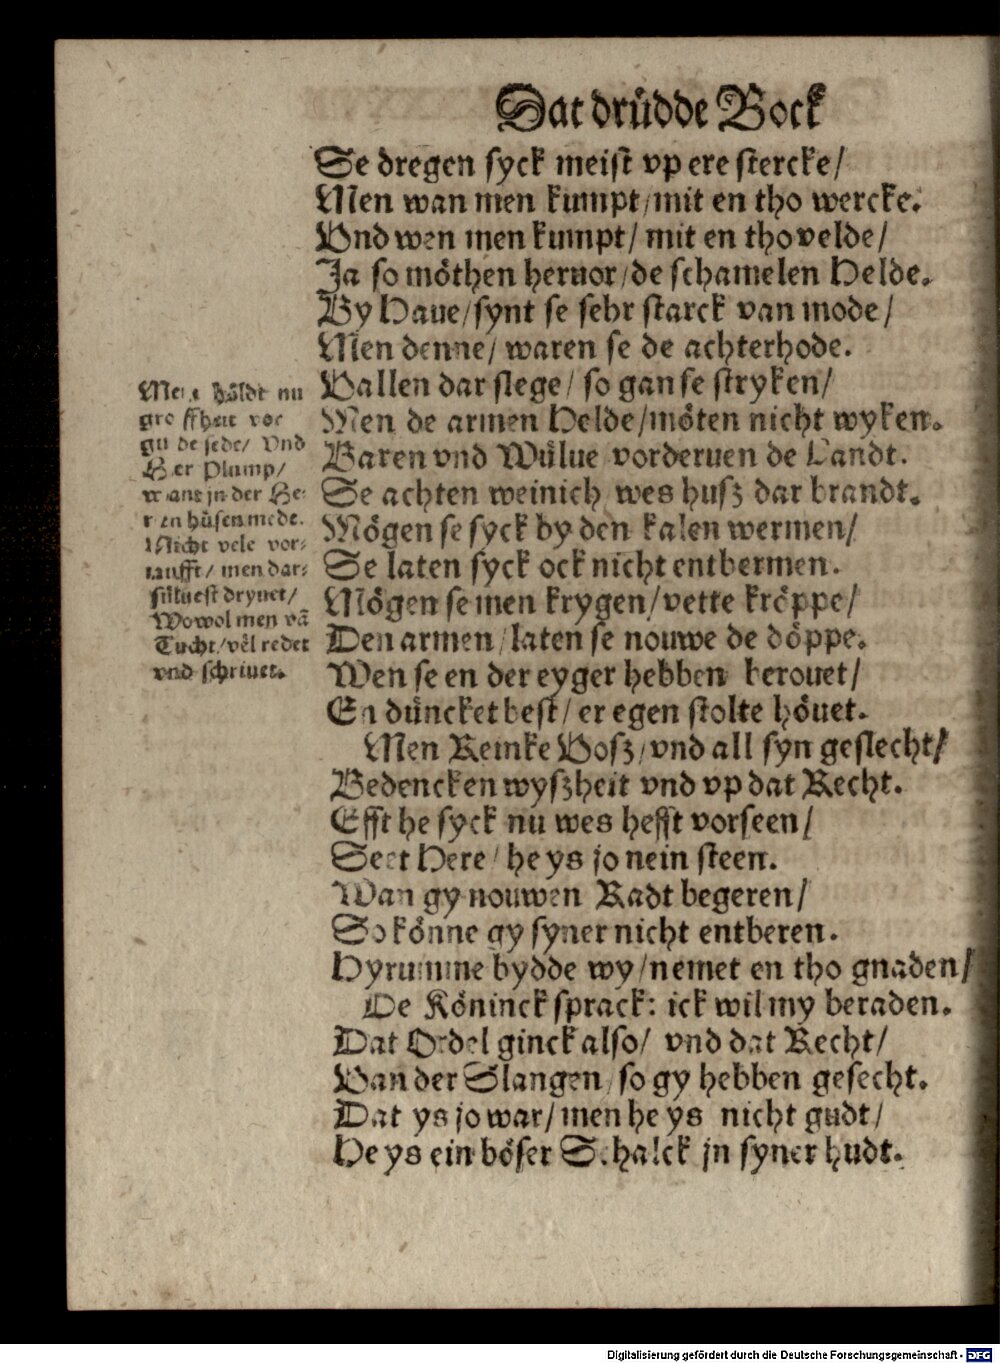 Dat drüdde Bock
Se dregen syck meist vp ere stercke/
Men wan men kumpt/mit en tho wercke.
Vnd wen men kumpt/ mit en tho velde/
Ja so möthen heruor/de schamelen Helde.
By Haue/synt se sehr starck van mode/
Men denne/ waren se de achterhode.
Vallen dar slege/ so gan se stryken/
Men de armen Helde/möten nicht wyken.
Baren vnd Wülue vorderuen de Landt.
Se achten weinich wes husz dar brandt.
Mögen se syck by den kalen wermen/
Se laten syck ock nicht entbermen.
Mögen se men krygen/vette kröppe/
Den armen/laten se nouwe de döppe.
Wen se en der eyger hebben berouet/
En düncket best/er egen stolte höuet.
Men Reinke Vosz/vnd all syn geslecht/
Bedencken wyszheit vnd vp dat Recht.
Efft he syck nu wes hefft vorseen/
Seet Here/ he ys jo nein steen.
Wan gy nouwen Radt begeren/
So könne gy syner nicht entberen.
Hyrumme bydde wy/nemet en tho gnaden/
De Köninck sprack: ick wil my beraden.
Dat Ordel ginck also/ vnd dat Recht/
Van der Slangen/so gy hebben gesecht.
Dat ys jo war/men he ys nicht gudt/
He ys ein böser Schalck jn syner hudt.
höldt nu
groffheit vor
gu de sede/ Vnd
Plump/
jn der He-
ren hüsen mede.
Nicht vele vor-
men dar-
süluest dryuet/
Wowol men vā
Tucht/vël redet
vnd schriuet.
Digitalisierung gefördert durch die Deutsche Forschungsgemeinschaft - DFG